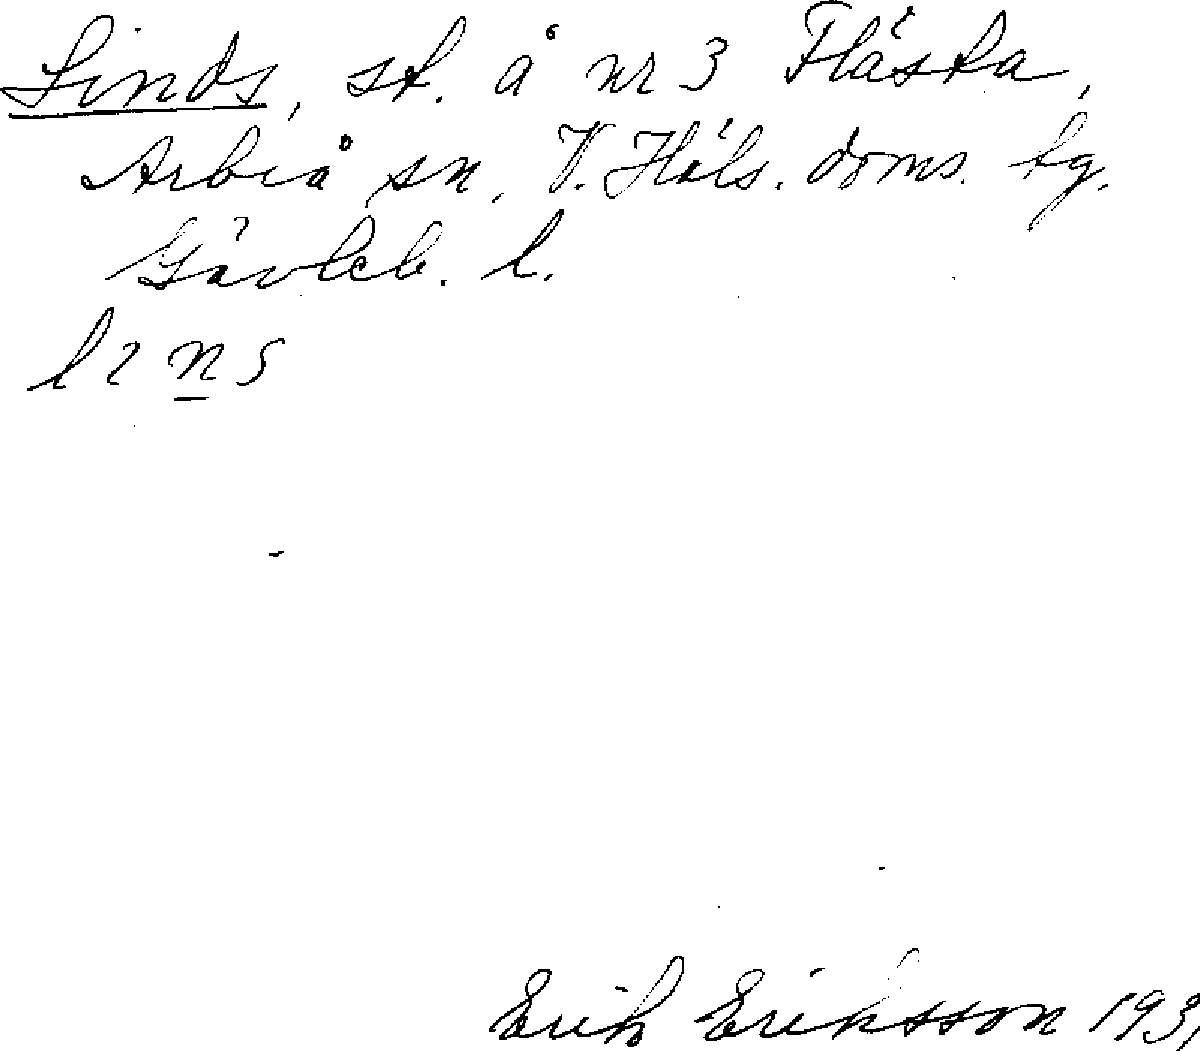 Linds, st. å nr 3 Flästa,
Arbrå sn. V. Häls. doms. tg.
Gävleb. l.
Erik Eriksson